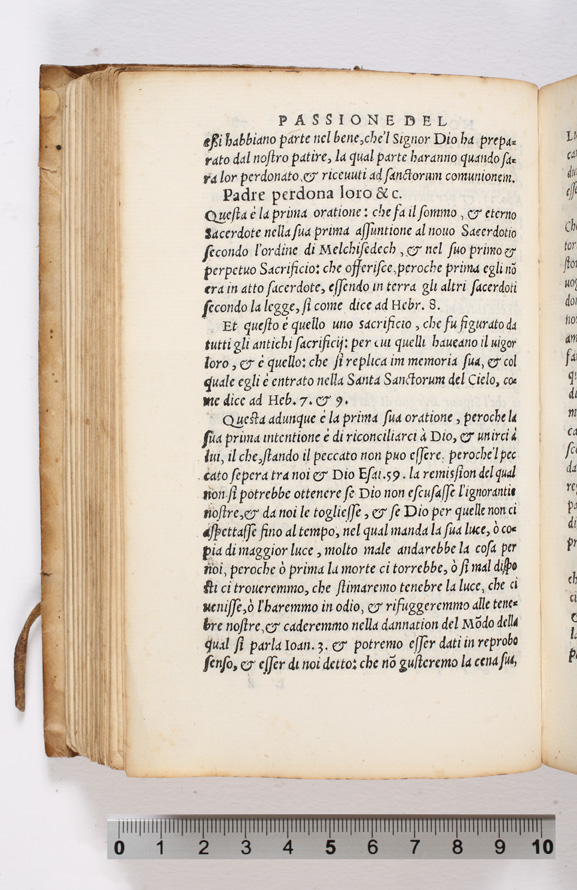 PASSIONE DEL
eßi habbiano parte nel bene, che'l Signor Dio ha prepa-
rato dal nostro patire, la qual parte haranno quando sa-
ra lor perdonato, & riceuuti ad sanctorum comunionem.
Padre perdona loro & c.
Questa è la prima oratione: che fa il sommo, & eterno
Sacerdote nella sua prima assuntione al nouo Sacerdotio
secondo l'ordine di Melchisedech, & nel suo primo &
perpetuo Sacrificio: che offerisce, peroche prima egli nō
era in atto sacerdote, essendo in terra gli altri sacerdoti
secondo la legge, si come dice ad Hebr. 8.
Et questo è quello uno sacrificio, che fu figurato da
tutti gli antichi sacrificij: per cui quelli haueano il uigor
loro, & è quello: che si replica im memoria sua, & col
quale egli è entrato nella Santa Sanctorum del Cielo, co-
me dice ad Heb. 7. & 9.
Questa adunque è la prima sua oratione, peroche la
sua prima intentione è di riconciliarci à Dio, & unirci à
lui, il che, stando il peccato non puo essere, peroche'l pec
cato sepera tra noi & Dio Esai. 59. la remission del qual
non si potrebbe ottenere se Dio non escusasse l'ignorantie
nostre, & da noi le togliesse, & se Dio per quelle non ci
aspettasse fino al tempo, nel qual manda la sua luce, ò co-
pia di maggior luce, molto male andarebbe la cosa per
noi, peroche ò prima la morte ci torrebbe, ò si mal dispo
sti ci troueremmo, che stimaremo tenebre la luce, che ci
uenisse, ò l'haremmo in odio, & rifuggeremmo alle tene-
bre nostre, & caderemmo nella dannation del Mōdo della
qual si parla Ioan. 3. & potremo esser dati in reprobo
senso, & esser di noi detto: che nō gusteremo la cena sua,
0 1 2 3 4 5 6 7 8 9 10